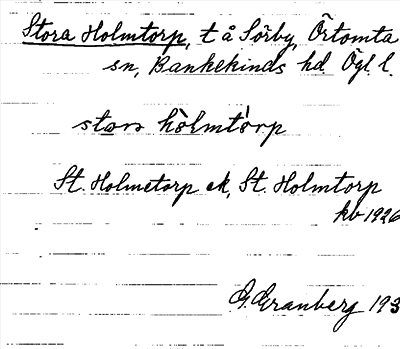 Stora Holmtorp, t å Sörby, Örtomta
sn, Bankekinds hd. Ögl l.
stora hòlmtórp
St. Holmetorp ek, St. Holmtorp
kb 1926
G. Granberg 193